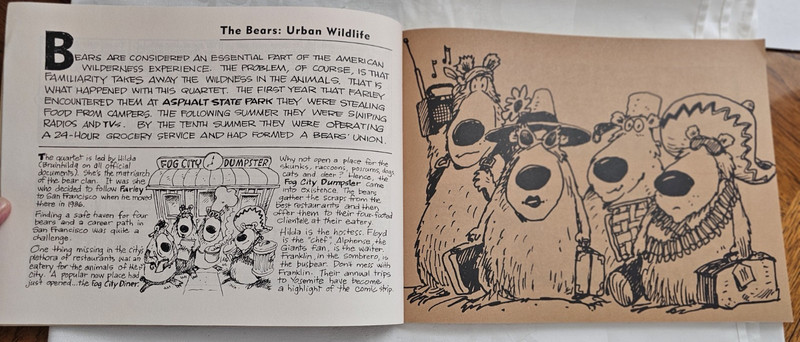 The Bears: Urban Wildlife
BEARS ARE CONSIDERED AN ESSENTIAL PART OF THE AMERICAN
WILDERNESS EXPERIENCE. THE PROBLEM, OF COURSE, IS THAT
FAMILIARITY TAKES AWAY THE WILDNESS IN THE ANIMALS. THAT IS
WHAT HAPPENED WITH THIS QUARTET. THE FIRST YEAR THAT FARLEY
ENCOUNTERED THEM AT ASPHALT STATE PARK THEY WERE STEALING
FOOD FROM CAMPERS. THE FOLLOWING SUMMER THEY WERE SWIPING
RADIOS AND TVs. BY THE TENTH SUMMER THEY WERE OPERATING
A 24-HOUR GROCERY SERVICE AND HAD FORMED A BEARS' UNION.
The quartet is led by Hilda
(Bruinhilda on all official
documents). She's the matriarch
of the bear clan. It was she
who decided to follow Farley
to San Francisco when he moved
there in 1986.
Finding a safe haven for four
bears and a career path in
San Francisco was quite a
challenge.
One thing missing in the city's
plethora of restaurants was an
eatery for the animals of the
City. A popular new place had
just opened...the Fog City Diner.
FOG CITY DUMPSTER
Why not open a place for the
skunks, raccoons, possums, dogs,
cats and deer? Hence, the
Fog City Dumpster came
into existence. The bears
gather the scraps from the
best restaurants and then
offer them to their four-footed
clientele at their eatery.
Hilda is the hostess. Floyd
is the "chef". Alphonse, the
Giants fan, is the waiter.
Franklin, in the sombrero, is
the busbear. Don't mess with
Franklin. Their annual trips
to Yosemite have become
a highlight of the comic strip.